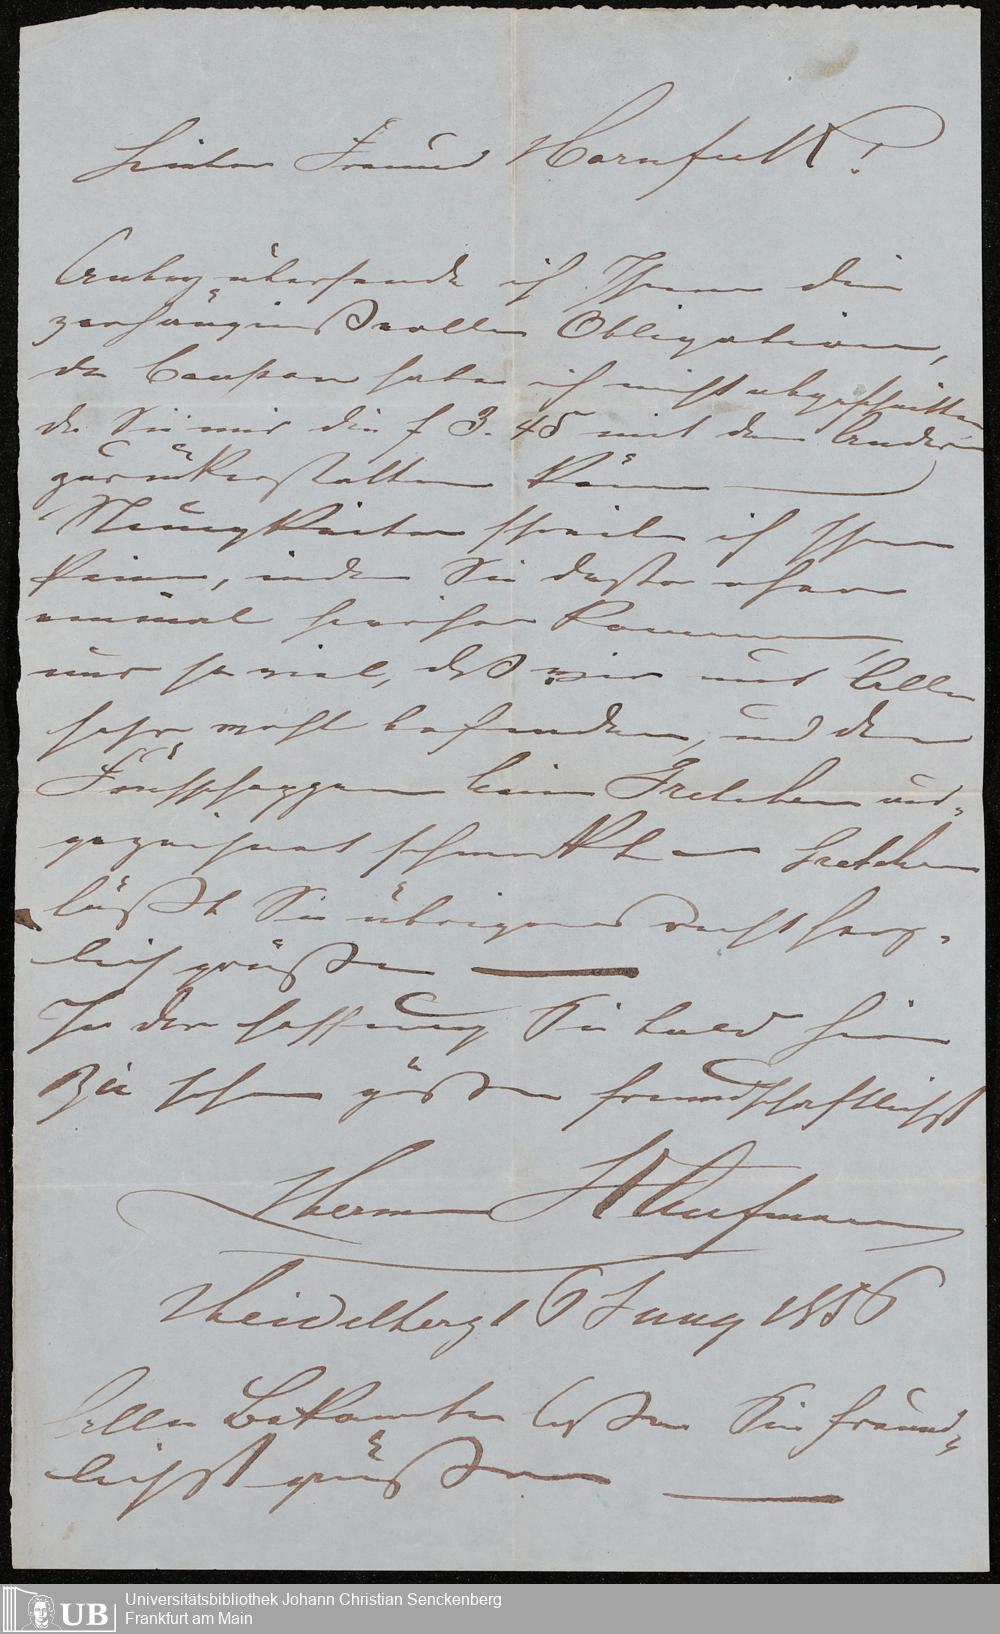 Lieber Freund Hornfeck!
Anbey übersende ich Ihnen die
verhängnißvolle Obligation,
den Coupon habe ich nicht abgeschnitten
da Sie mir die f 3. 45 mit dem Andern
zurückerstatten könen
Neuigkeiten schreibe ich Ihnen
keine, indem Sie desto eher
einmal hierher kommen
nur so viel, daß wir uns Alle
sehr wohl befinden, und der
beim Gretchen aus-
gezeichnet schmeckt — Gretchen
läßt Sie übrigens recht herz-
lich grüßen
In der Hoffnung Sie bald hier
zu sehen grüßen freundschaftlichst
Herm Kaufmann
Heidelberg 16 Juny 1856
Alle Bekannten laßen Sie freund-
lichst grüßen
Universitätsbibliothek Johann Christian Senckenberg
Frankfurt am Main
UB